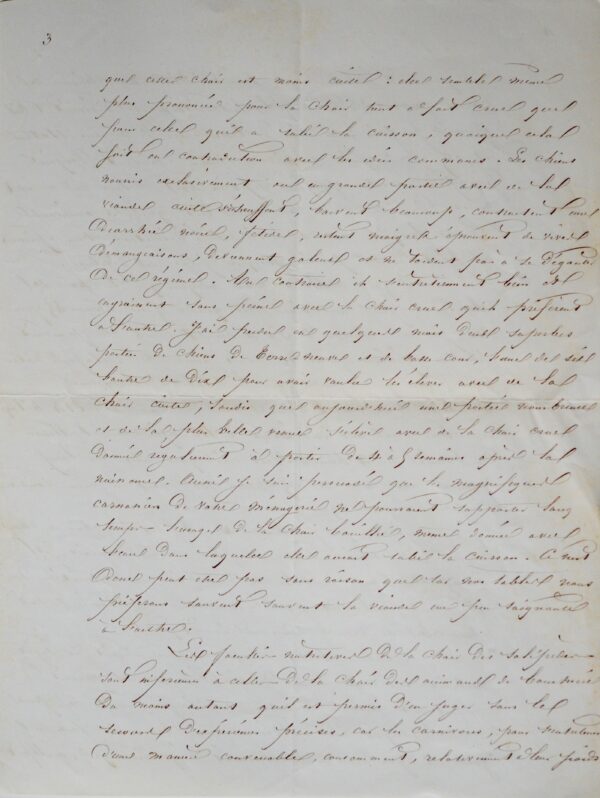 3
que cette chair est moins cuite : elle semble même
plus prononcée pour la chair tout à fait crue que
pour celle qui a subi la cuisson, quoique cela
soit en contradiction avec les idées communes. Les chiens
nourris exclusivement ou en grande partie avec de la
viande cuite s'échauffent, boivent beaucoup, contractent une
diarrhée noire, fétide, restent maigres, éprouvent de vives
démangeaisons, deviennent galeux et ne tardent pas à se dégoûter
de ce régime. Au contraire ils s'entretiennent bien et
engraissent sans peine avec la chair crue qu'ils préfèrent
à l'autre. J'ai perdu en quelques mois deux superbes
portées de chiens de Terre neuve et de basse cour, l'une de six
l'autre de dix pour avoir voulu les élever avec de la
chair cuite, tandis que aujourd'hui une portée nombreuse
et de la plus belle venue s'élève avec de la chair crue
donnée régulièrement à partir de 4 à 5 semaines après la
naissance. Aussi je suis persuadé que les magnifiques
carnassiers de votre ménagerie ne pourraient supporter long
temps l'usage de la chair bouillie, même donnée avec
l'eau dans laquelle elle aurait subi la cuisson. Ce n'est
donc peut être pas sans raison que sur nos tables nous
préférons souvent la viande un peu saignante
à l'autre.
Les facultés nutritives de la chair des solipèdes
sont inférieures à celles de la chair des animaux de boucherie
Du moins autant qu'il est permis d'en juger sans le
secours d'expériences précises, car les carnivores, pour s'entretenir
d'une manière convenable, consomment, relativement à leur poids